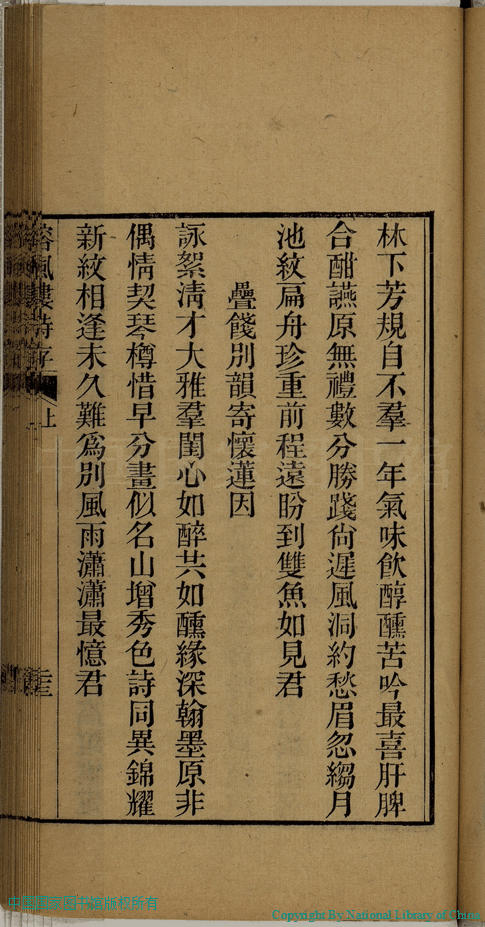 林下芳規自不羣一年氣味飲醇醺苦吟最喜肝脾
合酣讌原無禮數分勝踐尙遲風洞約愁眉忽縐月
池紋扁舟珍重前程遠盼到雙魚如見君
疊餞別韻寄懷蓮因
詠絮淸才大雅羣閨心如醉共如醺緣深翰墨原非
偶情契琴樽惜早分畫似名山增秀色詩同異錦耀
新紋相逢未久難爲別風雨瀟瀟最憶君
風樓詩存
上
中国国家图书馆版权所有
Copyright By National Library of China